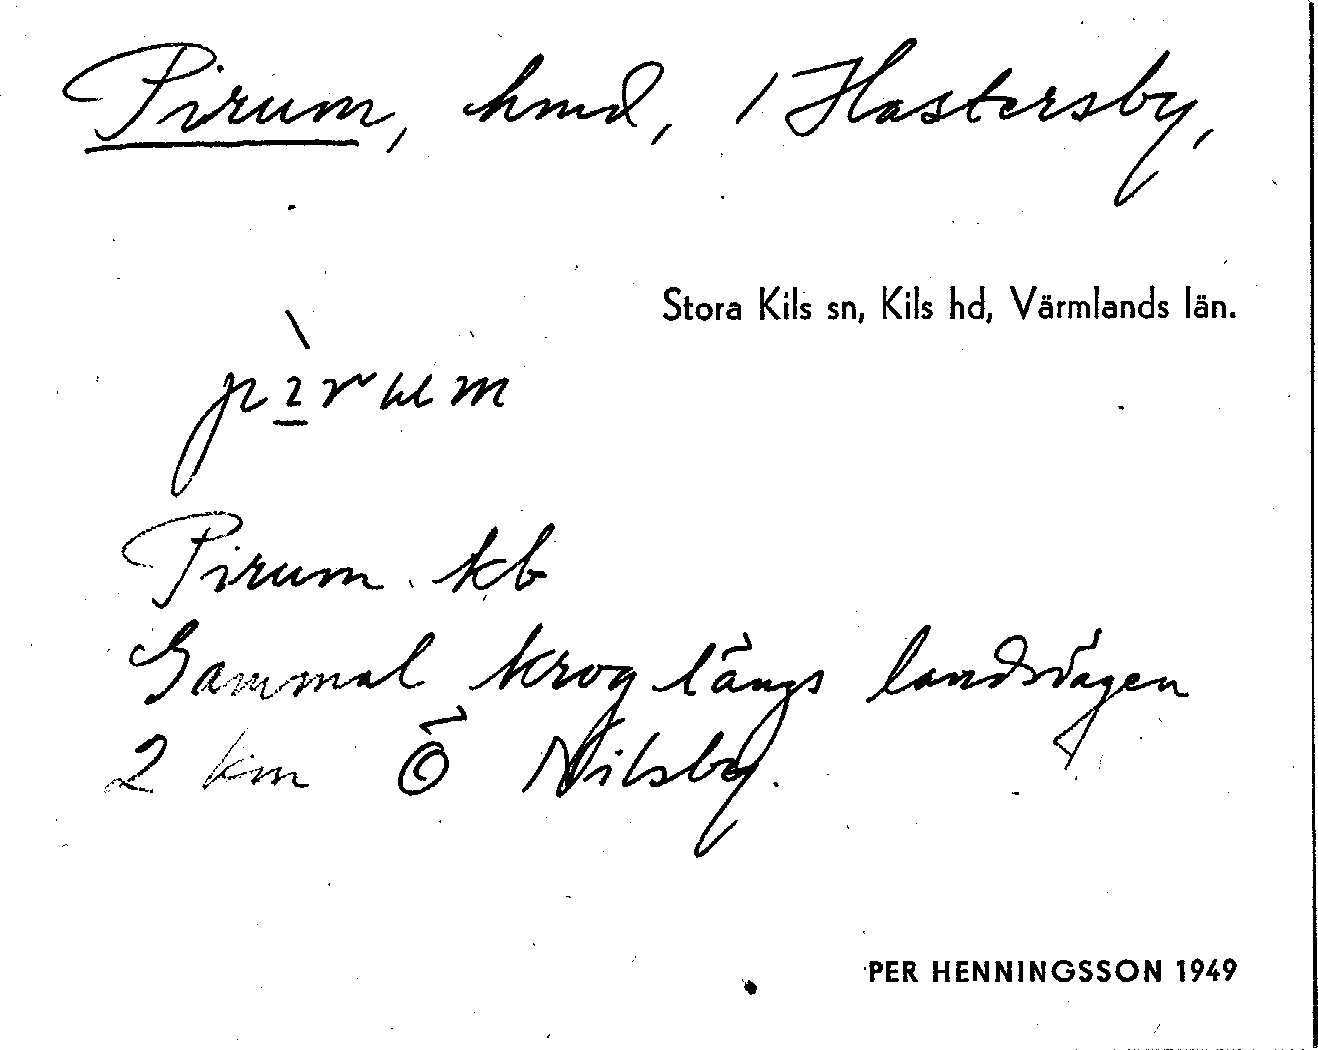 Pirum, hmd, 1 Hastersby,
Stora Kils sn, Kils hd, Värmlands län.
pìrum
Pirum kb
Gammal krog längs landsvägen
2 km Ö Nilsby.
PER HENNINGSSON 1949